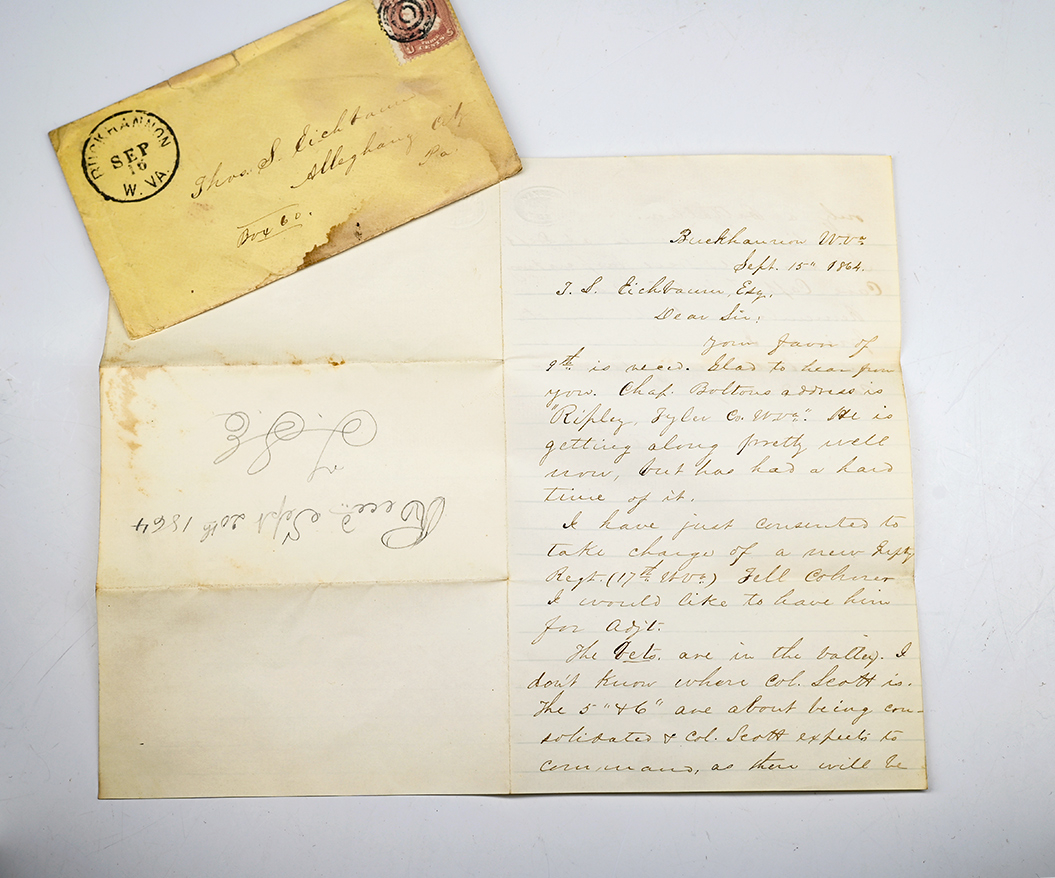 BUCKHANNON
SEP
15
W. VA.
THREE
CENTS
Thos. S. Eichbaum
Allegheny City
Pa.
Box 60.
Buckhannon W.Va
Sept. 15" 1864.
T. S. Eichbaum, Esq.
Dear Sir:
Your favor of
9th is recd. Glad to hear from
you. Chap. Boltons address is
"Ripley, Tyler Co. W.Va". He is
getting along pretty well
now, but has had a hard
time of it.
I have just consented to
take charge of a new Infty
Regt. (17th W.Va) Tell
I would like to have him
for Adjt.
The Vets. are in the valley. I
don't know where Col. Scott is.
The 5" & 6" are about being con-
solidated & Col. Scott expects to
command, as there will be
Recd. Sept 20th 1864
T.S.E